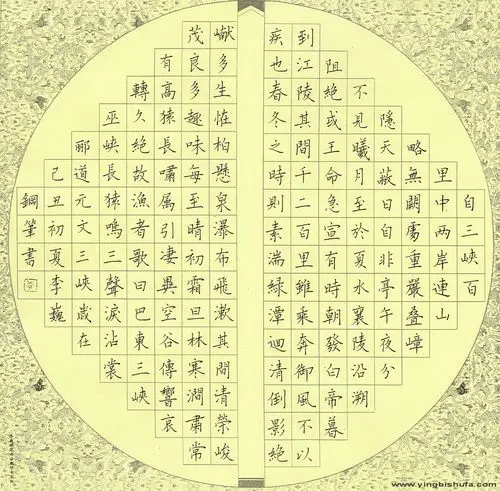 自三峽百
里中兩岸連山
略無闕處重巖叠嶂
隱天蔽日自非亭午夜分
不見曦月至於夏水襄陵沿溯
阻絕或王命急宣有時朝發白帝暮
到江陵其間千二百里雖乘奔御風不以
疾也春冬之時則素湍綠潭迴清倒影絕
巘多生怪柏懸泉瀑布飛漱其間青榮峻
茂良多趣味每至晴初霜旦林寒澗肅常
有高猿長嘯属引淒異空谷傳響哀
轉久絕故漁者歌曰巴東三峽
巫峽長猿鳴三聲淚沾裳
酈道元文三峽歲在
己丑初夏李巍
鋼筆書
www.yingbishufa.com